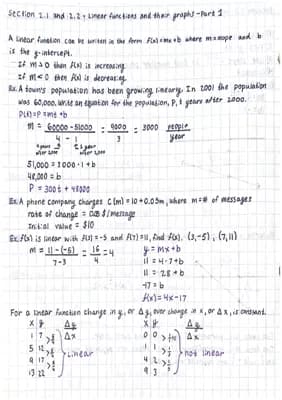 Section 2.1 and 2.2 : Linear functions and their graphs - Part 1
A linear function can be written in the form f(x) = mx + b where m = slope and b
is the y-intercept.
If m > 0 then f(x) is increasing.
If m < 0 then f(x) is decreasing.
Ex. A town's population has been growing linearly. In 2001 the population
was 60,000. Write an equation for the population, P, t years after 2000.
P(t) = P = mt + b
m = 60000 - 51000 = 9000 = 3000 people
4 - 1 3 year
4 years after 2000 1 year after 2000
51,000 = 3000 · 1 + b
48,000 = b
P = 300t + 48000
Ex: A phone company charges C(m) = 10 + 0.05m, where m = # of messages
rate of change = 0.05 $/message
Initial value = $10
Ex. f(x) is linear with f(3) = -5 and f(7) = 11, find f(x). (3,-5) ; (7,11)
m = 11 - (-5) = 16 = 4 y = mx + b
7 - 3 4 11 = 4 · 7 + b
11 = 28 + b
-17 = b
f(x) = 4x - 17
For a linear function change in y, or Δy, over change in x, or Δx, is constant.
x y Δy x y Δy
1 7 Δx 0 0 Δx
5 12 1 1
9 17 Linear 4 2 not linear
13 22 9 3